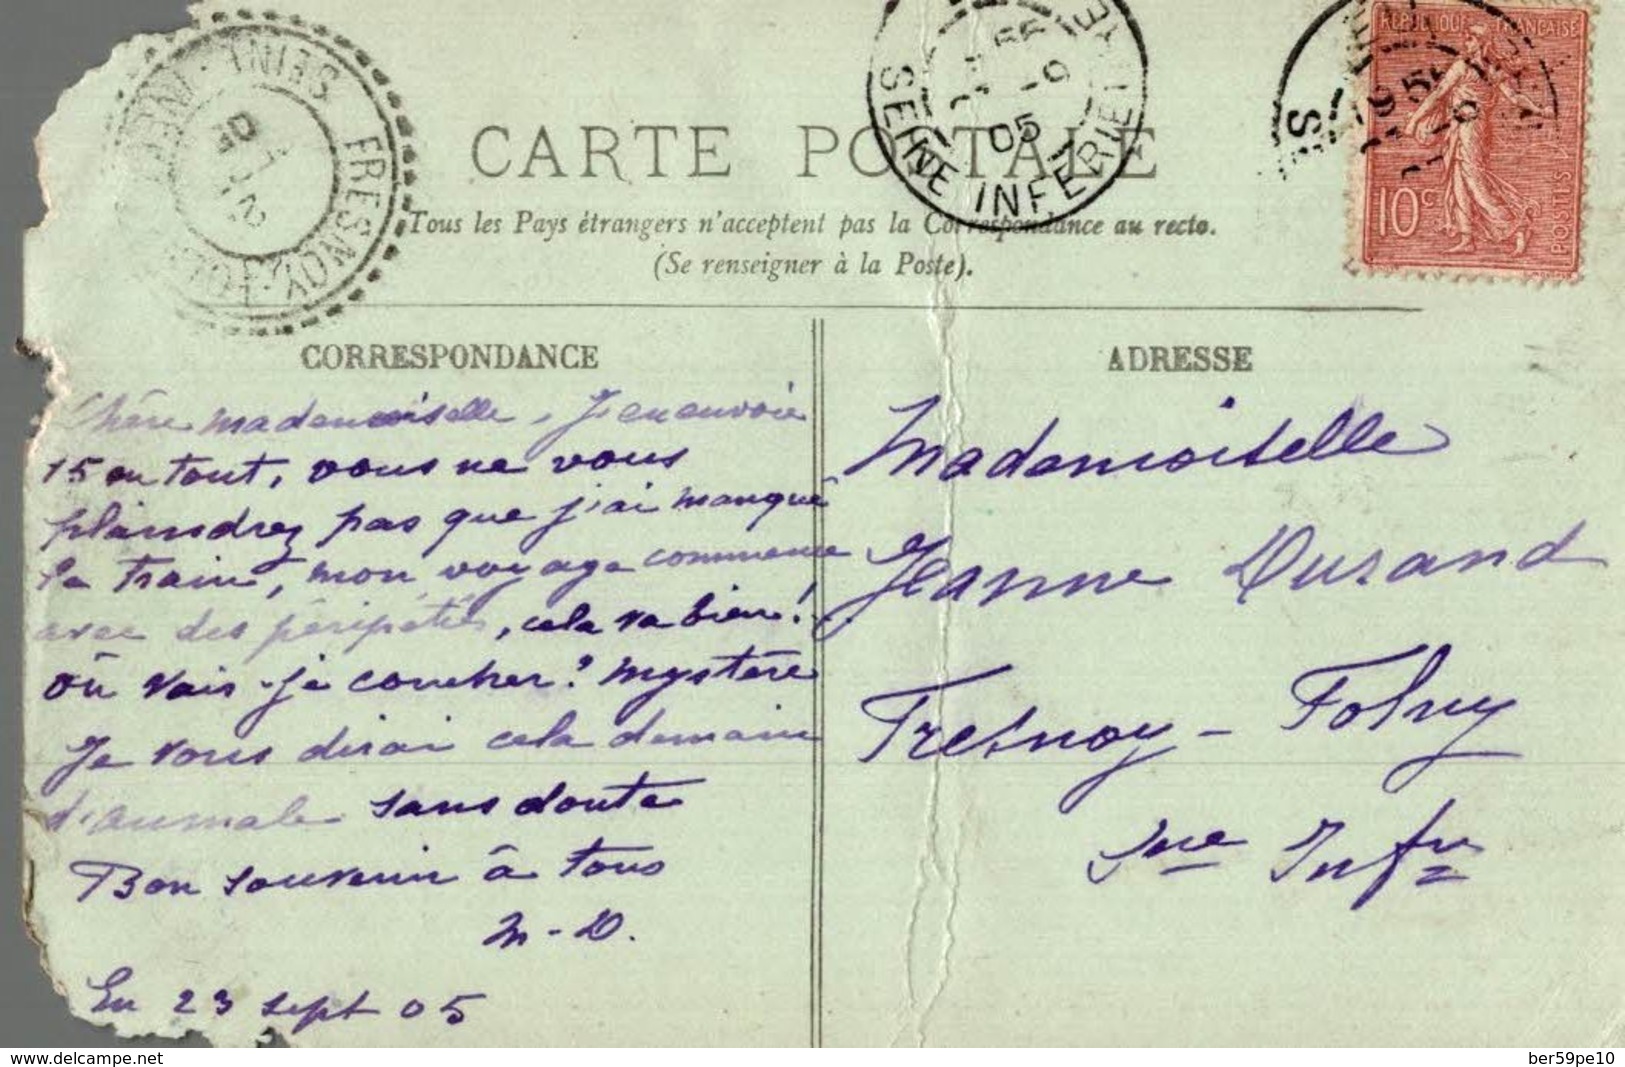 CARTE POSTALE
Tous les Pays étrangers n'acceptent pas la Correspondance au recto.
(Se renseigner à la Poste).
SEINE INFERIEURE
05
FRESNOY-FOLNY
SEINE
REPUBLIQUE FRANÇAISE
10c
POSTES
CORRESPONDANCE
Chère mademoiselle, J'en envoie
15 en tout, vous ne vous
plaindrez pas que j'ai manqué
le train, mon voyage commence
avec des péripéties, cela va bien!
où vais-je coucher? mystère
Je vous dirai cela demain
d'aumale sans doute
Bon souvenir à tous
M-D.
En 23 sept 05
ADRESSE
Mademoiselle
Jeanne Durand
Fresnoy-Folny
Sne Infre
www.delcampe.net
ber59pe10